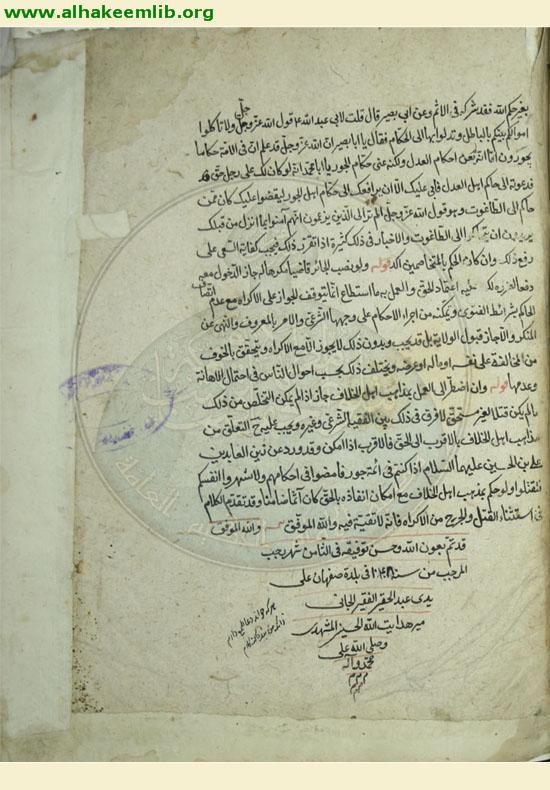 www.alhakeemlib.org
بغير حكم الله فقد شركه فى الاثم وعن ابى بصير قال قلت لابى عبد الله ع قول الله عز وجل ولا تاكلوا
اموالكم بينكم بالباطل وتدلوا بها الى الحكام فقال يا ابا بصير ان الله عز وجل قد علم ان فى الامة حكاما
يجورون اما انه لم يعن احكام العدل ولكنه عنى حكام الجور يا ابا محمد انه لو كان لك على رجل حق فد
فدعوته الى حاكم اهل العدل فابى عليك الا ان يرافعك الى حكام اهل الجور ليقضوا عليك كان ممن
حاكم الى الطاغوت وهو قول الله عز وجل الم تر الى الذين يزعمون انهم آمنوا بما انزل من قبلك
يريدون ان يتحاكموا الى الطاغوت والاخبار فى ذلك كثيرة اذا تقرر ذلك فيجب كفاية السعى على
رفع ذلك وان كان الحكم بالمتخاصمين اكد قوله ولو نصب الجائر قاضيا مكرها له جاز الدخول معه
دفعا لضرره لكن عليه اعتماد الحق والعمل به ما استطاع انما يتوقف الجواز على الاكراه مع عدم اتصاف
الحاكم بشرائط الفتوى وتمكنه من اجراء الاحكام على وجهها الشرعى والامر بالمعروف والنهى عن
المنكر والا جاز قبول الولاية بل قد يجب وبدون ذلك لا يجوز الا مع الاكراه ويتحقق بالخوف
من المخالفة على نفسه او ماله او عرضه ويختلف ذلك بحسب احوال الناس فى احتمال الاهانة
وعدمها قوله وان اضطر الى العمل بمذاهب اهل الخلاف جاز اذا لم يمكن التخلص من ذلك
ما لم يكن قتلا لغير مستحق لا فرق فى ذلك بين الفقيه الشرعى وغيره ويجب عليه ح التعلق من
مذاهب اهل الخلاف بالاقرب الى الحق فالاقرب اذا امكن وقد ورد عن زين العابدين
على بن الحسين عليهما السلام اذا كنتم فى ائمة جور فامضوا فى احكامهم ولا تشهروا انفسكم
فتقتلوا ولو حكم بمذهب اهل الخلاف مع امكان انفاذه بالحق كان آثما ضامنا وقد تقدم الكلام
فى استثناء القتل والجريح من الاكراه فانه لا تقية فيه والله الموفق والله الموفق
قد تم بعون الله وحسن توفيقه فى الثامن شهر رجب
المرجب من سنة فى بلدة صفهان على
يدى عبد الحقير الفقير الجانى
مير هدايت الله الحسينى المشهدى
وصلى الله على
محمد وآله
م م م
هر كه خواند دعا طمع دارم
زانكه من بنده گنه كارم